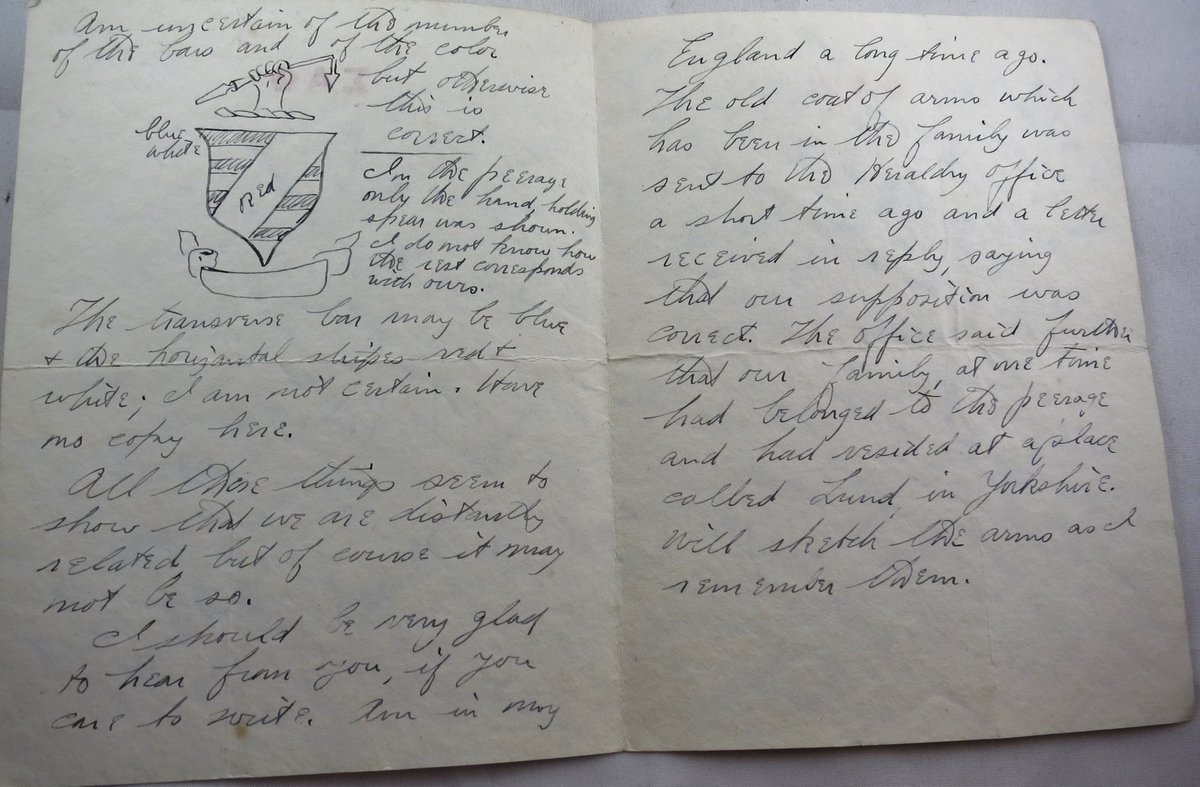 Am uncertain of the number
of the bars and of the color
but otherwise
this is
correct.
blue
white
RED
In the peerage
only the hand, holding
spear was shown.
I do not know how
the rest corresponds
with ours.
The transverse bar may be blue
+ the horizontal stripes red +
white; I am not certain. Have
no copy here.
All these things seem to
show that we are distantly
related but of course it may
not be so.
I should be very glad
to hear from you, if you
care to write. Am in my
England a long time ago.
The old coat of arms which
has been in the family was
sent to the Heraldry Office
a short time ago and a letter
received in reply, saying
that our supposition was
correct. The office said further
that our family, at one time
had belonged to the peerage
and had resided at a place
called Lund, in Yorkshire.
Will sketch the arms as I
remember them.